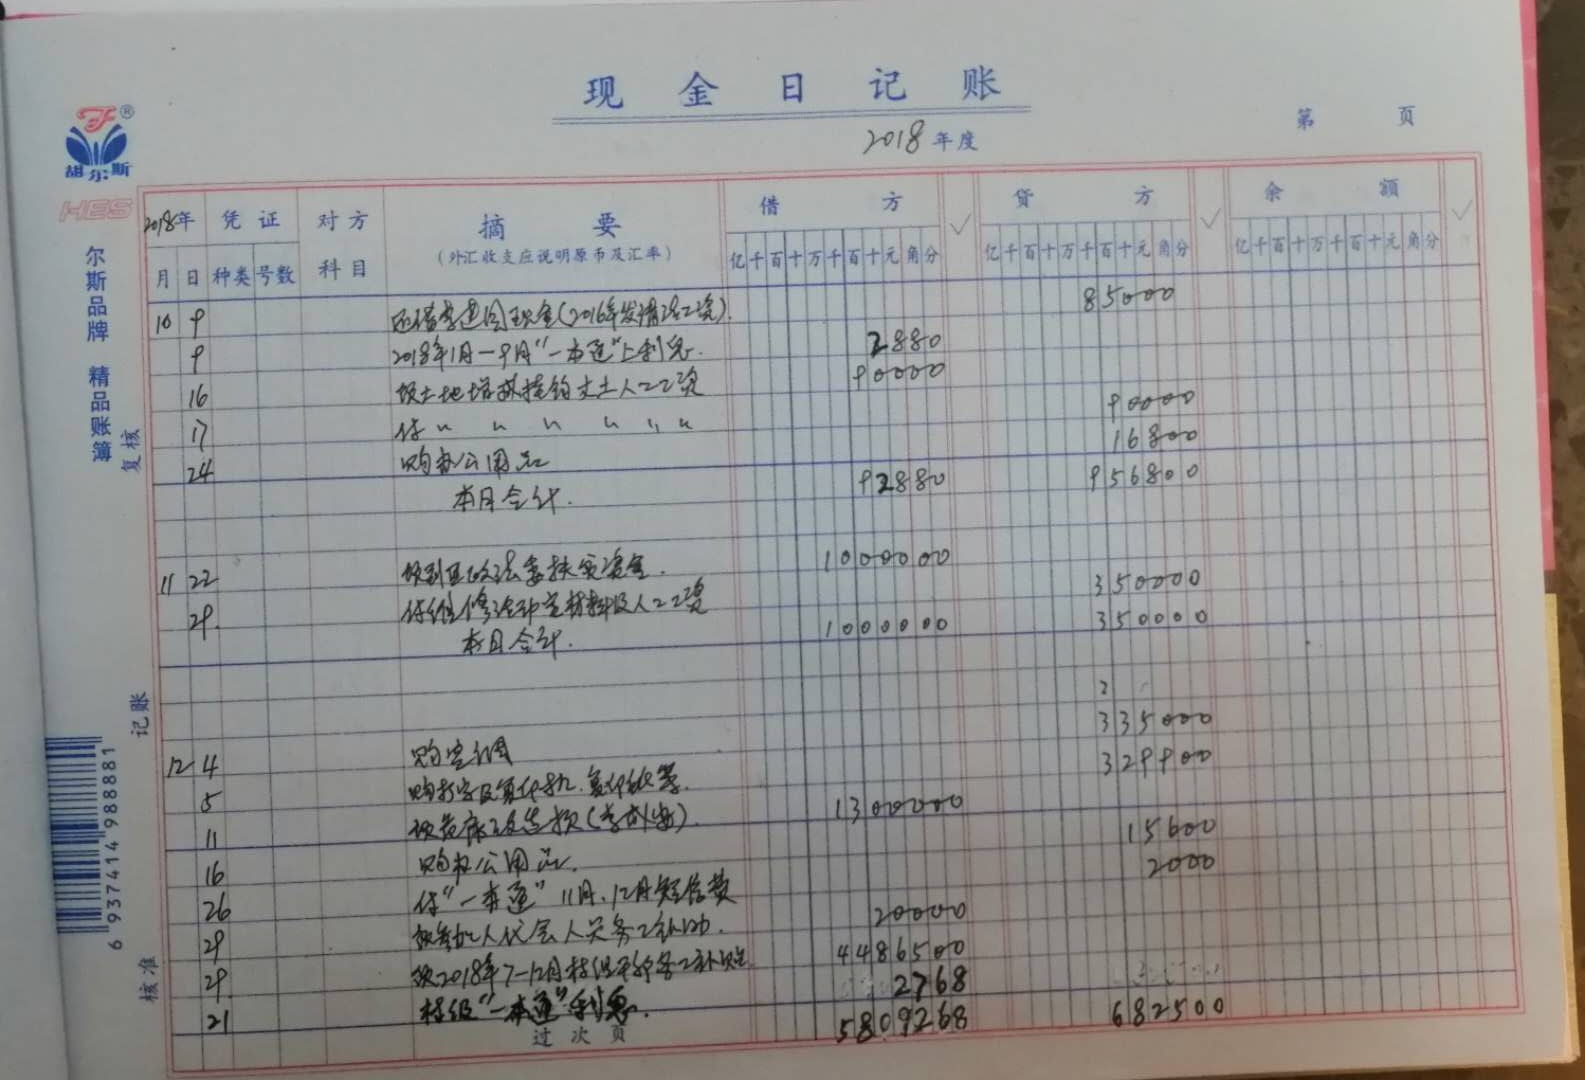 现 金 日 记 账
2018 年 度
第 页
胡尔斯
HES
尔斯品牌 精品账簿
复核
记账
核准
6 937414 988881
2018年 凭 证 对 方 摘 要 借 方 ✓ 贷 方 ✓ 余 额 ✓
(外汇收支应说明原币及汇率)
月 日 种类 号数 科 目 亿千百十万千百十元角分 亿千百十万千百十元角分 亿千百十万千百十元角分
10 9 (2016年发清洁工资). 85000
9 2018年1月—9月“一本通”上利息. 2880
16 领土地增减挂钩 土人工工资 90000
17 付 〃 〃 〃 〃 〃 〃 90000
24 购办公用品 16800
本月合计. 92880 956800
11 22 领到区政法委扶贫资金. 1000000
29. 付维修 材料及人工工资 350000
本月合计. 1000000 350000
2
12 4 购空调 335000
5 购打字及复印机、复印纸等. 329900
11 1300000
16 购办公用品. 15600
26 付“一本通”11月、12月短信费 2000
29 领参加人代会人员务工补助. 20000
29. 领2018年7—12月村组干部务工补贴 4486500
21 村级“一本通”利息. 2768
过 次 页 5809268 682500